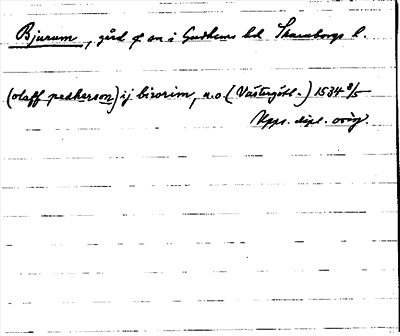 Bjurum, gård o sn i Gudhems hd Skaraborgs l.
(olaff pedherson) ij biorim, u.o. (Västergötl.) 1534 9/5
Upps. dipl. orig.